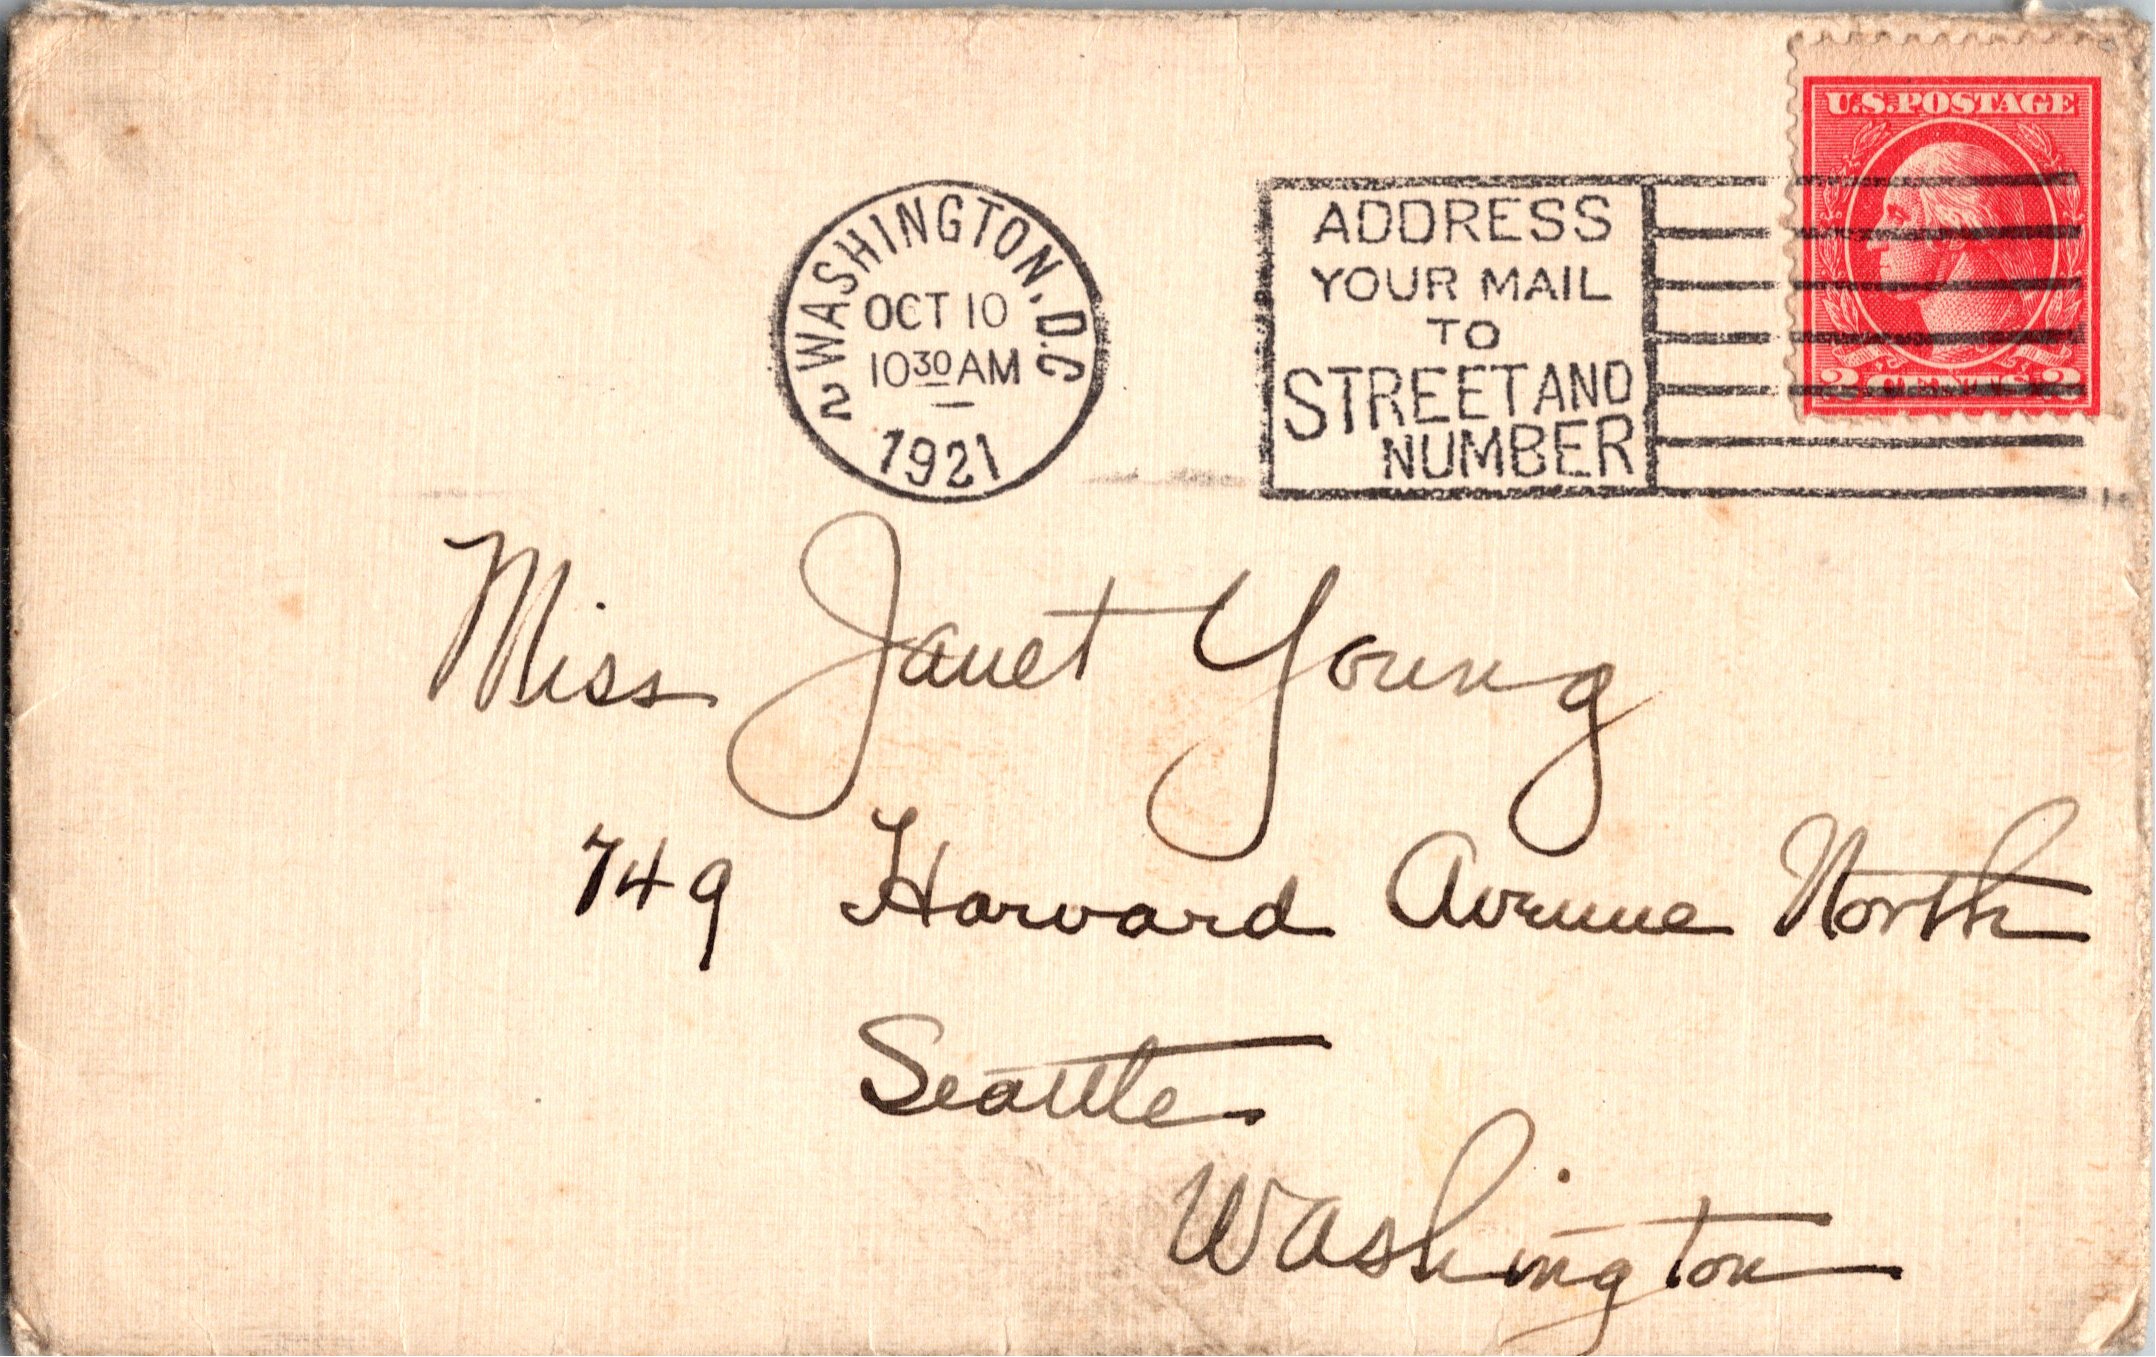 U.S. POSTAGE
2 CENTS 2
2 WASHINGTON, D.C
OCT 10
10 30 AM
1921
ADDRESS
YOUR MAIL
TO
STREET AND
NUMBER
Miss Janet Young
749 Harvard Avenue North
Seattle
Washington